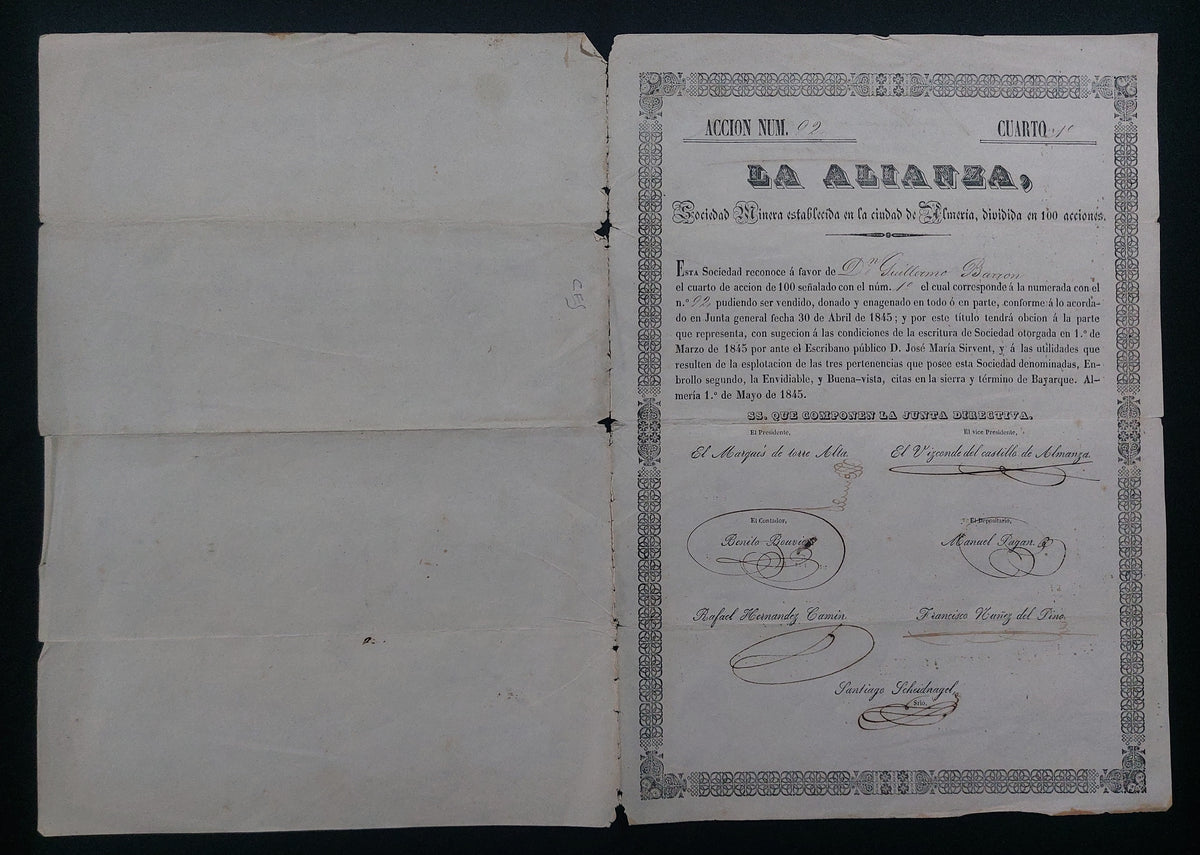 ACCION NUM. 92
CUARTO 1º
LA ALIANZA,
Sociedad Minera establecida en la ciudad de Almeria, dividida en 100 acciones.
ESTA Sociedad reconoce á favor de Dn Guillermo Barron
el cuarto de accion de 100 señalado con el núm. 1º el cual corresponde á la numerada con el
n.º 92 pudiendo ser vendido, donado y enagenado en todo ó en parte, conforme á lo acorda-
do en Junta general fecha 30 de Abril de 1845; y por este título tendrá obcion á la parte
que representa, con sugecion á las condiciones de la escritura de Sociedad otorgada en 1.º de
Marzo de 1845 por ante el Escribano público D. José María Sirvent, y á las utilidades que
resulten de la esplotacion de las tres pertenencias que posee esta Sociedad denominadas, En-
brollo segundo, la Envidiable, y Buena-vista, citas en la sierra y término de Bayarque. Al-
mería 1.º de Mayo de 1845.
SS. QUE COMPONEN LA JUNTA DIRECTIVA.
El Presidente,
El vice Presidente,
El Marques de torre Alta.
El Vizconde del castillo de Almanza.
El Contador,
El Depositario,
Benito Bouvier
Manuel Pagan.
Rafael Hernandez Camin.
Francisco Nuñez del Pino.
Santiago Scheidnagel.
Srio.